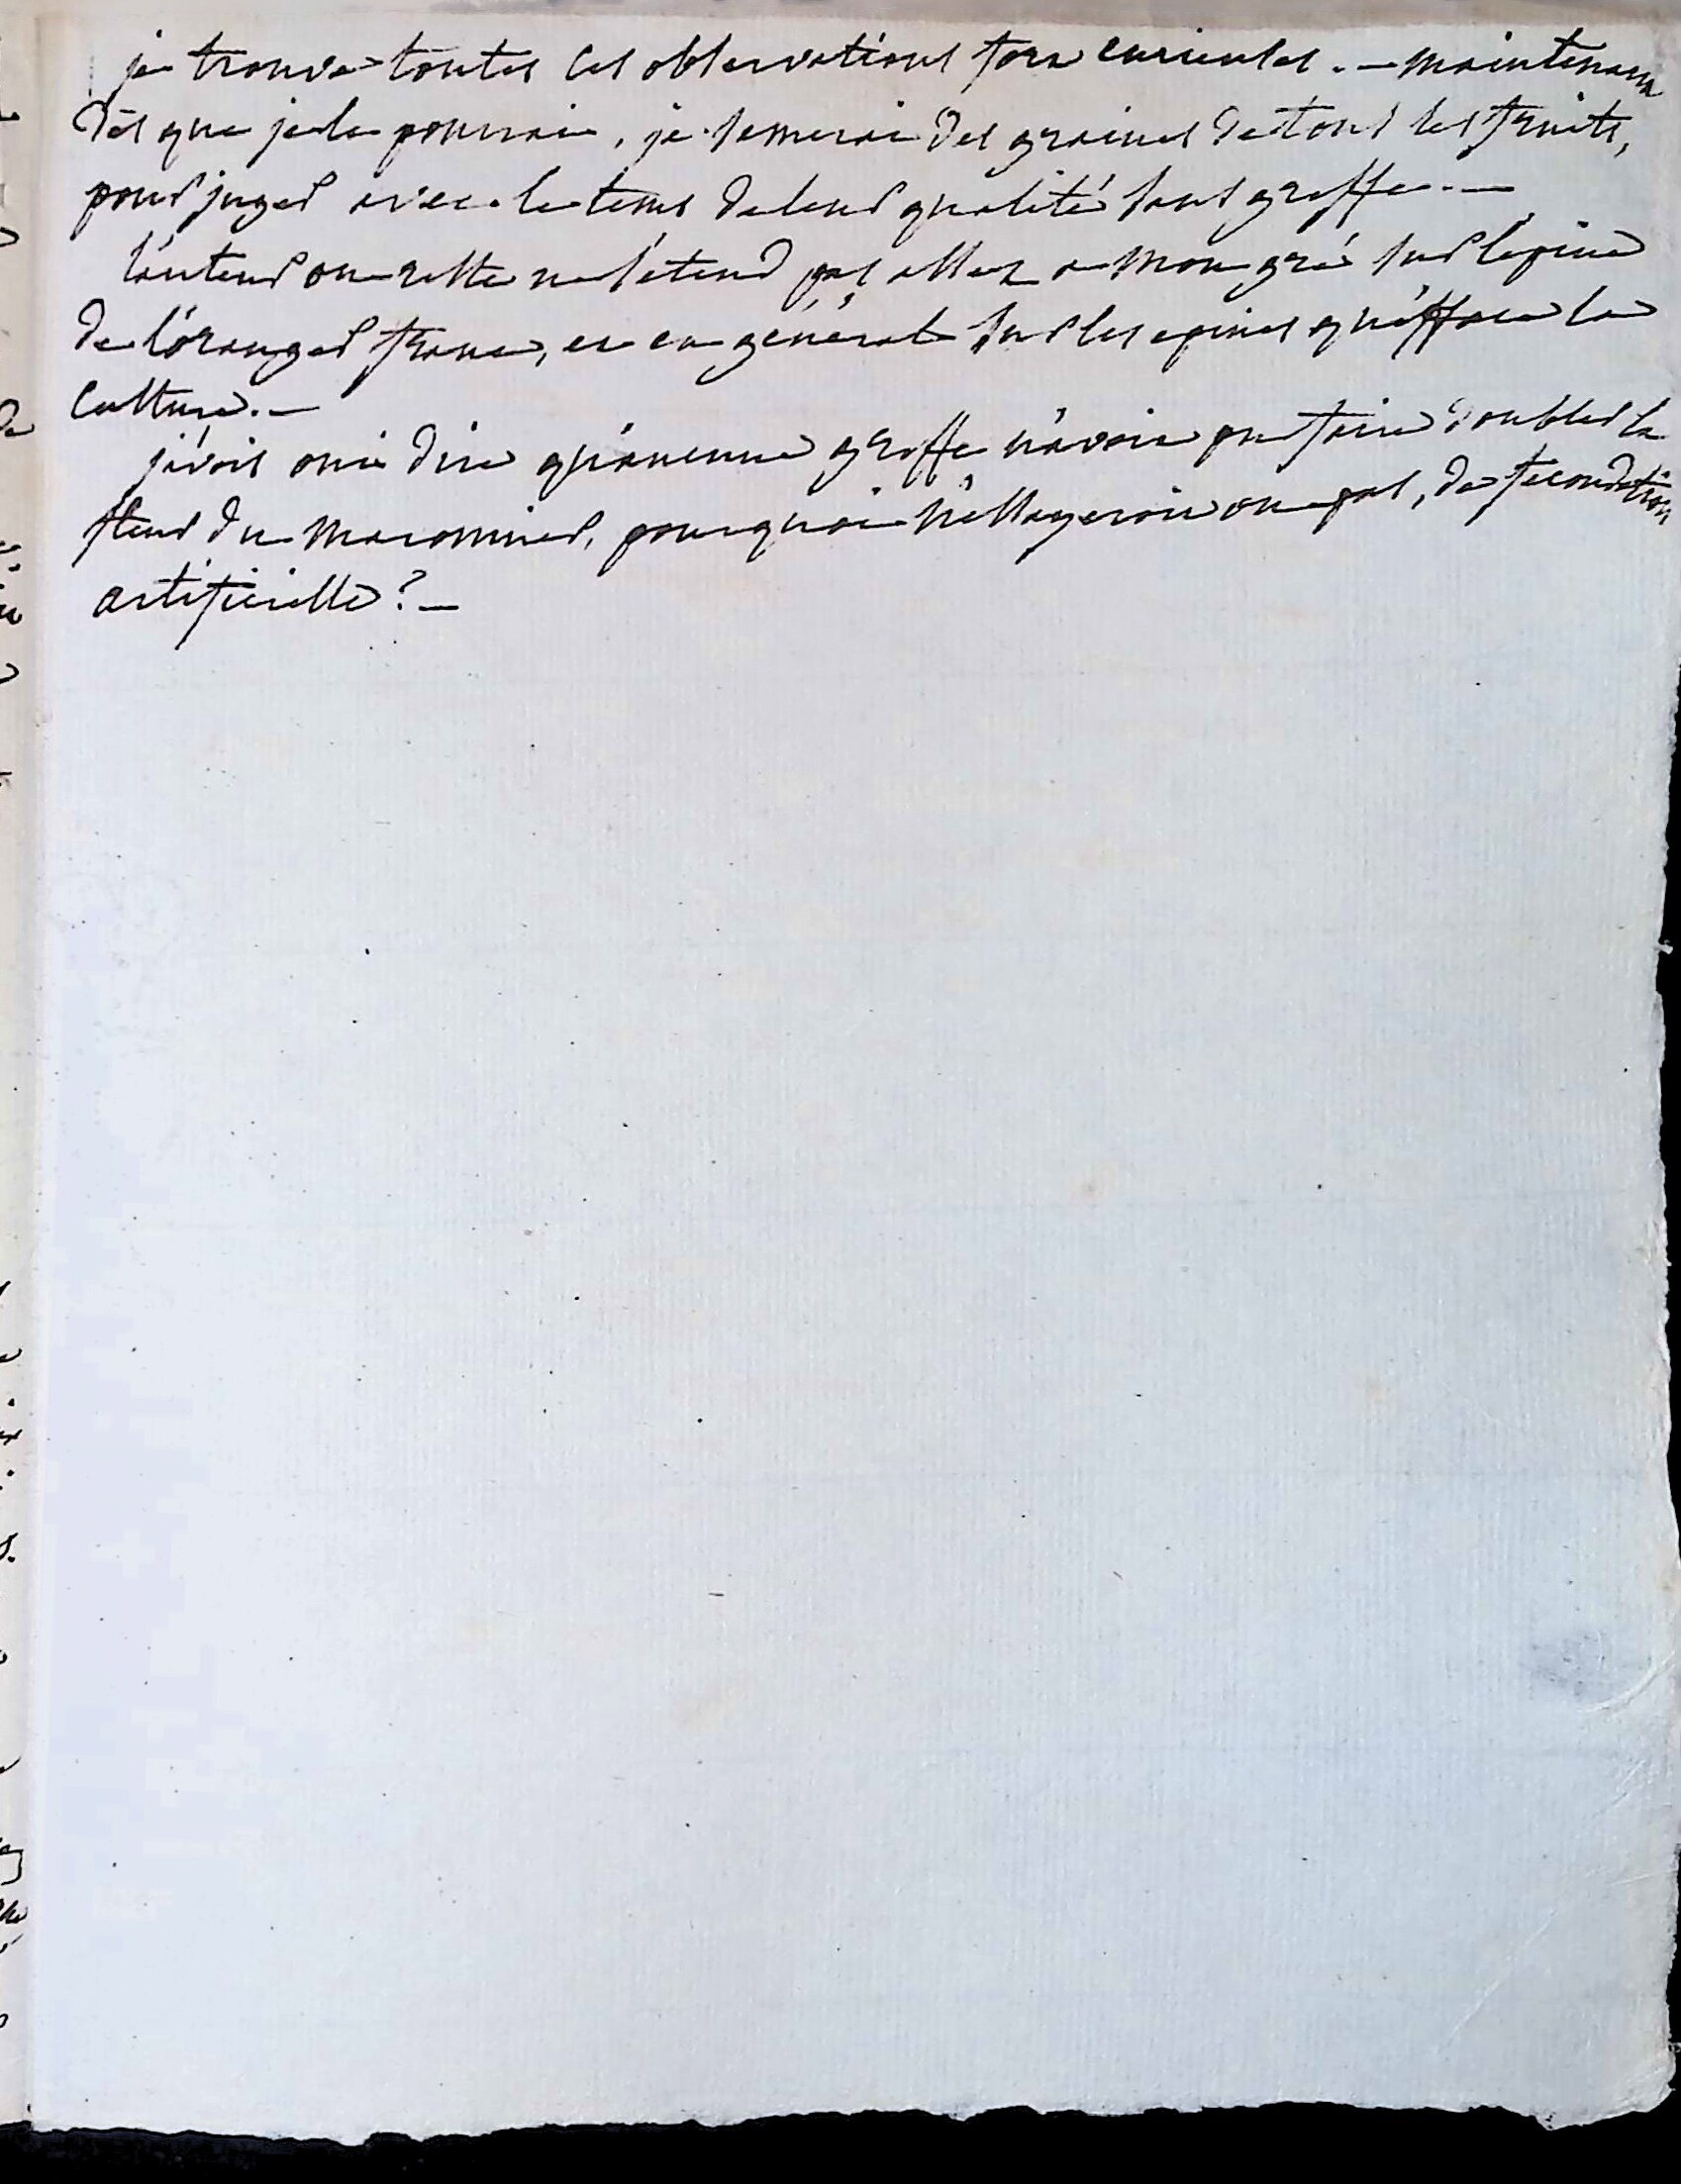 je trouve toutes ces observations fort curieuses. — maintenant
dès que je le pourrai, je semerai des graines de tous les fruits,
pour juger avec le tems de leur qualité sans greffe. —
l'auteur ne s'étend pas assez a mon gré sur l'epine
de l'oranger franc, et en général sur les epines qu'efface la
culture. —
j'avois oui dire qu'aucune greffe n'avoit pu faire doubler la
fleur du maronnier, pourquoi n'essayeroit on pas, de fecondation
artificielle? —